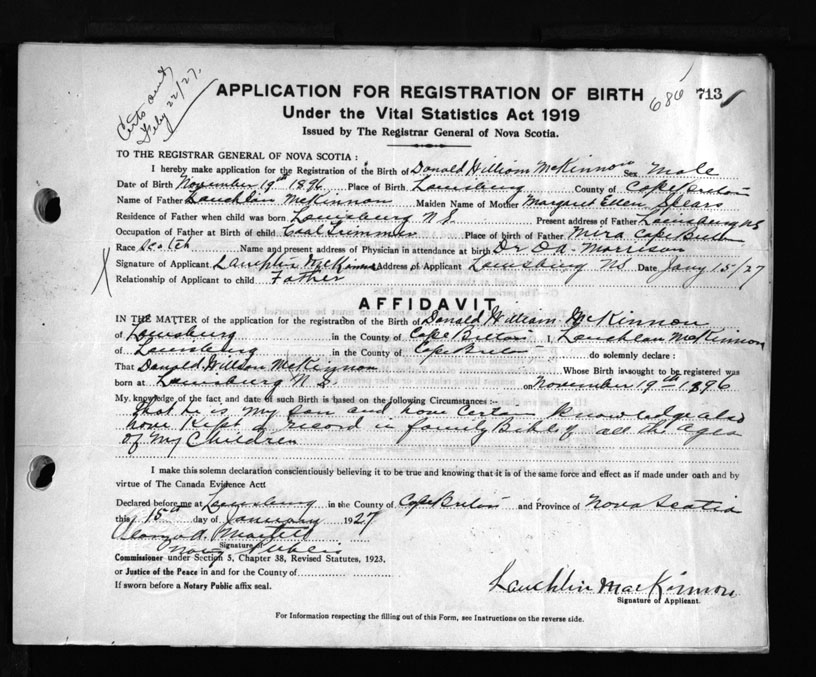 Certs and
Feby 22/27.
APPLICATION FOR REGISTRATION OF BIRTH 686 713
Under the Vital Statistics Act 1919
Issued by The Registrar General of Nova Scotia.
TO THE REGISTRAR GENERAL OF NOVA SCOTIA :
I hereby make application for the Registration of the Birth of Donald William McKinnon Sex Male
Date of Birth November 19th 1896 Place of Birth Louisburg County of Cape Breton
Name of Father Lauchlan McKinnon Maiden Name of Mother Margaret Ellen Spears
Residence of Father when child was born Louisburg N S Present address of Father Louisburg NS
Occupation of Father at Birth of child Coal Trimmer Place of birth of Father Mira Cape Breton
Race Scotch Name and present address of Physician in attendance at birth Dr Morrison
Signature of Applicant Lauchlin McKinnon Address of Applicant Louisburg NS Date Jany 15/27
Relationship of Applicant to child Father
AFFIDAVIT
IN THE MATTER of the application for the registration of the Birth of Donald William McKinnon
of Louisburg in the County of Cape Breton I, Lauchlan McKinnon
of Louisburg in the County of Cape Breton do solemnly declare :
That Donald William McKinnon Whose Birth is sought to be registered was
born at Louisburg N S on November 19th 1896
My knowledge of the fact and date of such Birth is based on the following Circumstances :-
That he is my son and have certain knowledge also
have Kept a record in family Bible of all the ages
of my Children
I make this solemn declaration conscientiously believing it to be true and knowing that it is of the same force and effect as if made under oath and by
virtue of The Canada Evidence Act.
Declared before me at Louisburg in the County of Cape Breton and Province of Nova Scotia
this 15th day of January 1927
Martell
Signature of
Notary Public
Commissioner under Section 5, Chapter 38, Revised Statutes, 1923,
or Justice of the Peace in and for the County of
If sworn before a Notary Public affix seal.
Lauchlin MacKinnon
Signature of Applicant.
For Information respecting the filling out of this Form, see Instructions on the reverse side.